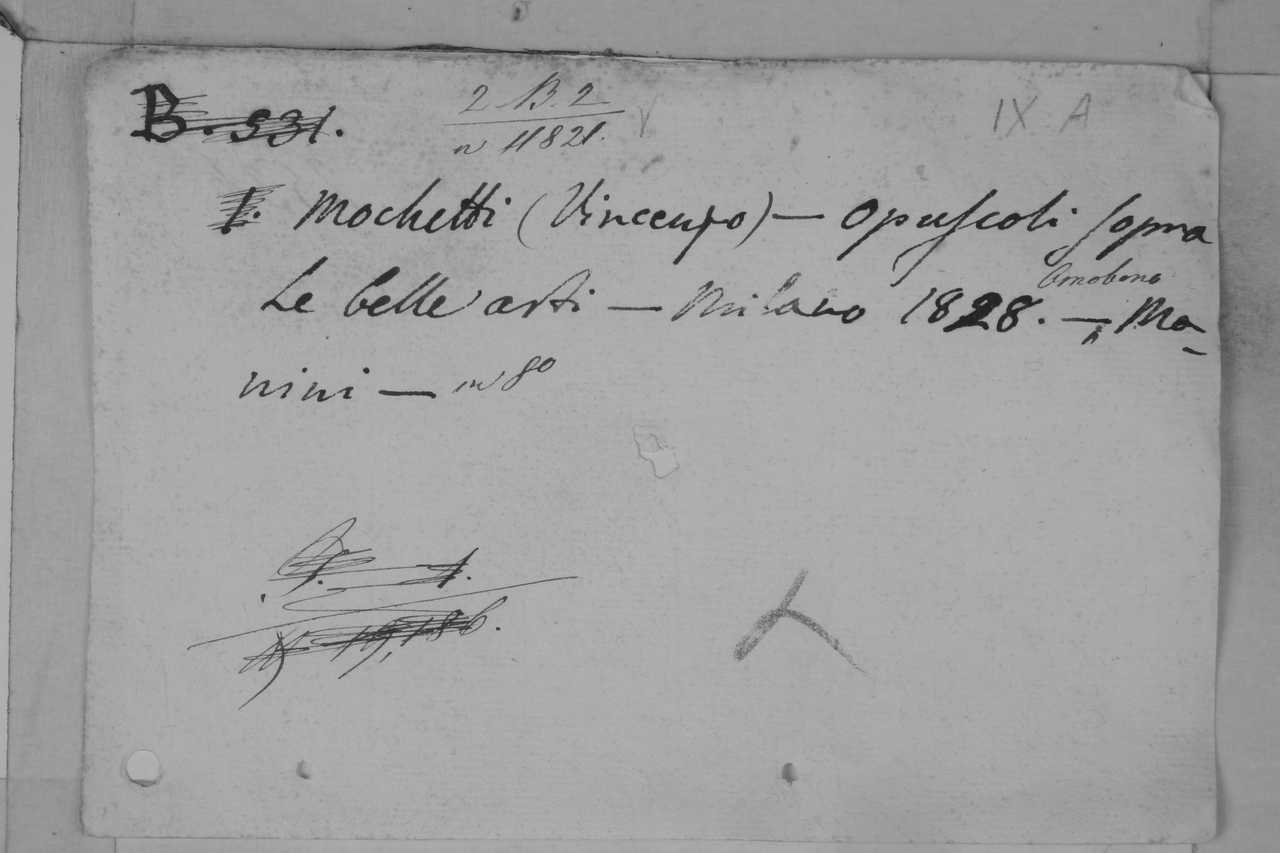 B. 531.
2 B. 2
n 11821.
IX A
1. Mochetti (Vincenzo) — Opuscoli sopra
Le belle arti — Milano 1828. — Omobono Ma-
nini — in 8º